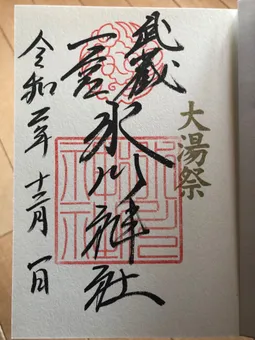 大湯祭
武蔵
一宮
氷川神社
令和 年十二月一日